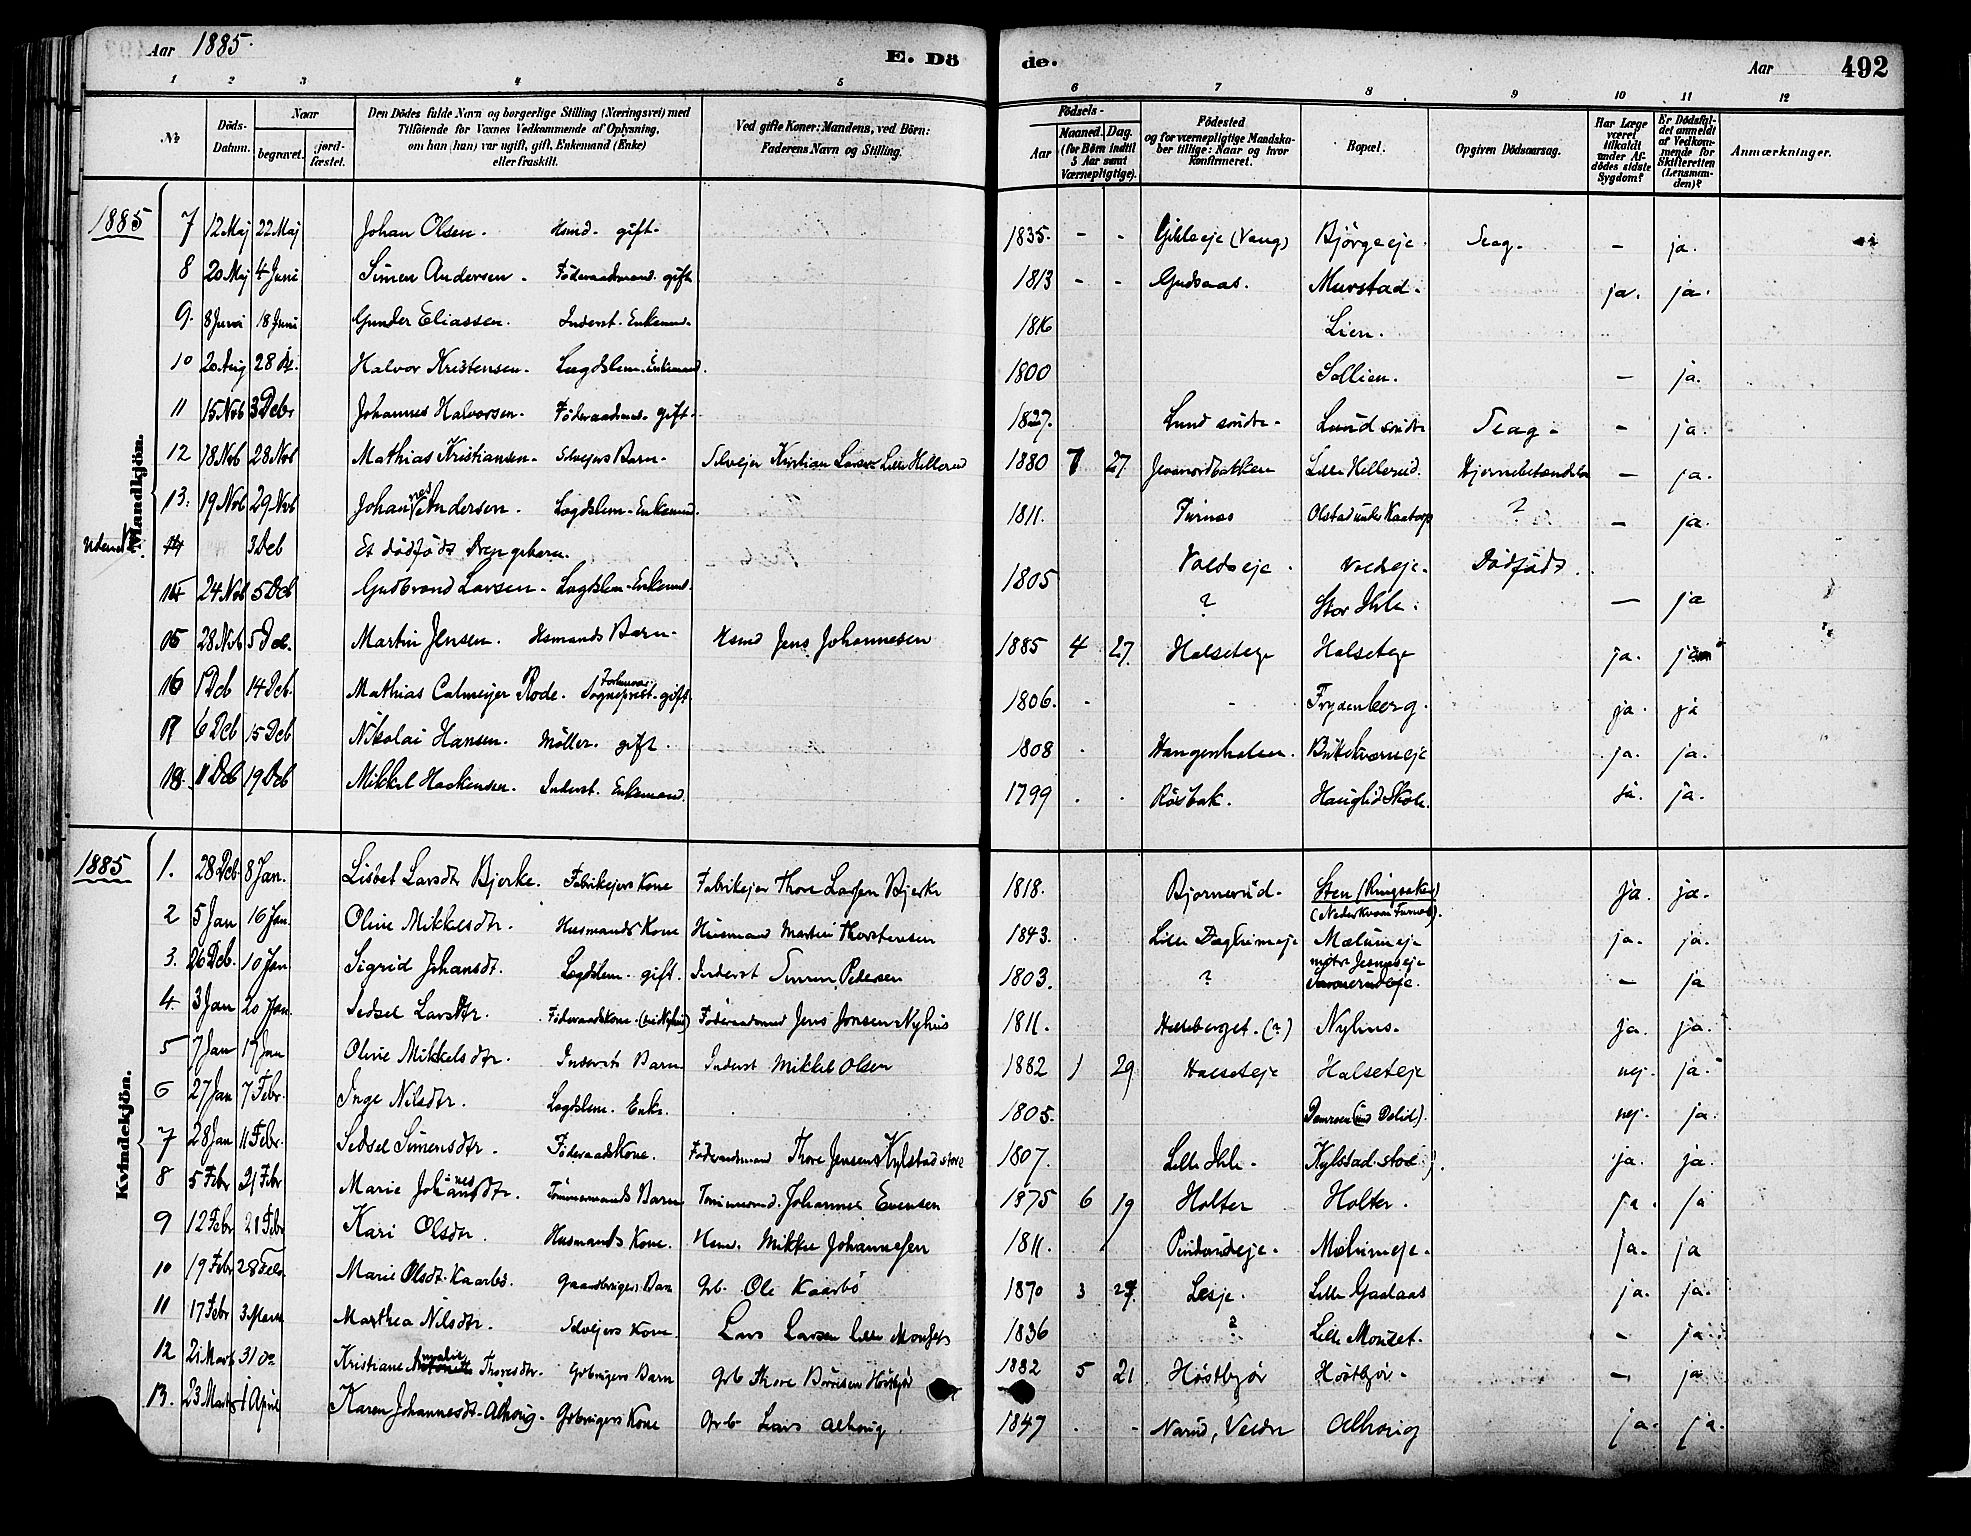 Aar 1885.
E. Dö
de.
Aar
492
1 2 3 4 5 6 7 8 9 10 11 12
Nr.
Döds-Datum.
Naar
begravet.
jord-fæstet.
Den Dödes fulde Navn og borgerlige Stilling (Næringsvei) med
Tilföiende for Voxnes Vedkommende af Oplysning,
om han (hun) var ugift, gift, Enkemand (Enke)
eller fraskilt.
Ved gifte Koner: Mandens, ved Börn:
Faderens Navn og Stilling.
Födsels-
Aar
Maaned. Dag.
(for Börn indtil
5 Aar samt
Værnepligtige).
Födested
og for værnepligtige Mandska-
ber tillige: Naar og hvor
Konfirmeret.
Bopæl.
Opgiven Dödsaarsag.
Har Læge
været
tilkaldt
under Af-
dödes sidste
Sygdom?
Er Dödsfal-
det anmeldt
af Vedkom-
mende for
Skifteretten
(Lensman-
den)?
Anmærkninger.
1885
Mandkjön.
7 12 Maj 22 Maj Johan Olsen. Hsmd. gift. 1835. - - (Vang) Bjørgeeje. - ja.
8 20 Maj 4 Juni Simen Andersen. Föderaadsmand. gift 1813 - - Gudsaas. Murstad. ja. ja.
9. 8 Juni 18 Juni Gunder Eliassen. Inderst. Enkemand. 1816 Lien.
10 20 Aug 28 Halvor Kristensen. Lægdslem. Enkemand. 1800 Sollien. - ja.
11 15 Nob 3 Debr Johannes Halvorsen. Föderaadsmd. gift. 1827. Lund söndre Lund söndre - ja.
12 18 Nob 28 Nob Mathias Kristiansen. Selvejers Barn. Selvejer Kristian Larsen Lille Hellerud 1880 7 27 Lille Hellerud. Hjernebetændelse - ja.
13. 19 Nob 29 Nob Johannes Andersen. Lægdslem. Enkemand. 1811. Furnes Olstad under Kaatorp ? - ja.
14 3 Deb Et dödfödt Drengebarn. Voldseje. Voldseje. Dödfödt.
24 Nob 5 Deb Gudbrand Larsen. Lægdslem. Enkemd. 1805 ? Stor Ihle. - ja
15 28 Nob 5 Deb. Martin Jensen. Hsmands Barn. Hsmd Jens Johannesen 1885 4 27. Halseteje Halseteje ja. ja
16 1 Deb 14 Deb. Mathias Calmeijer Rode. Forhenv. Sogneprest. gift. 1806. - - Frydenberg. ja. ja
17 6 Deb 15 Deb Nikolai Hansen. Møller. gift. 1808 . ja. ja.
18. 11 Deb 19 Deb Mikkel Haakensen. Inderst. Enkemand. 1799 . . Røsbak. Hauglid Skole. ja. ja.
1885
Kvindekjön.
1. 28 Deb. 8 Jan. Lisbet Larsdtr Bjerke. Fabrikejers Kone Fabrikejer Thore Larsen Bjerke 1818. Bjørnerud. Sten (Ringsaker) (Nederkvern Furnes). ja. ja.
2 5 Jan 16 Jan. Oline Mikkelsdtr. Husmands Kone Husmand Martin Thorstensen 1843. Lille Dæglumeje Mælumeje ja. ja.
3. 26 Deb. 10 Jan Sigrid Johansdt. Lægdslem. gift. Inderst Simen Pedersen 1803. ? - ja
4. 3 Jan 20 Jan. Sedsel Larsdtr. Föderaadskone. Föderaadsmd Jens Jonsen Nyhus 1811. (?) Nyhus. ja. ja.
5 7 Jan 17 Jan Oline Mikkelsdtr. Indersts Barn Inderst Mikkel Olsen 1882 1 29 Halseteje Halseteje nej. ja.
6 27 Jan 7 Febr. Inge Nilsdtr. Lægdslem. Enke. 1805. nej. ja.
7 28 Jan 11 Febr. Sedsel Simensdtr. Föderaadskone. Föderaadsmand Thore Jensen Kylstad store 1807. Lille Ihle. Kylstad store. ja. ja.
8 5 Febr 21 Febr Marie Johannesdtr. Tömmermands Barn Tömmermd. Johannes Evensen 1875 6 19 Holter Holter. ja. ja
9 12 Febr 21 Febr Kari Olsdtr. Husmands Kone. Hsmd. Mikkel Johannesen 1811. Mælumeje. ja. ja
10 19 Febr 28 Febr. Marie Olsdt. Kaarbö. Gaardbrugers Barn Grb. Ole Kaarbö 1870 3 27. Lesje. Lille Gaalaas ja. ja.
11 17 Febr 3 Marts Marthea Nilsdtr. Selvejers Kone. Lars Larsen Lille Monset 1836 ? Lille Monset. - ja.
12 21 Marts 31 do Kristiane Amalie Thoresdtr. Grbrugers Barn Grb Thore Börresen Höstbjör 1882 5 21 Höstbjör Höstbjör. - ja
13. 23 Marts 1 April Karen Johannesdt. Alhoug. Grbrugers Kone Grb Lars Alhoug. 1847 . - Narud, Veldre Alhoug ja. ja.